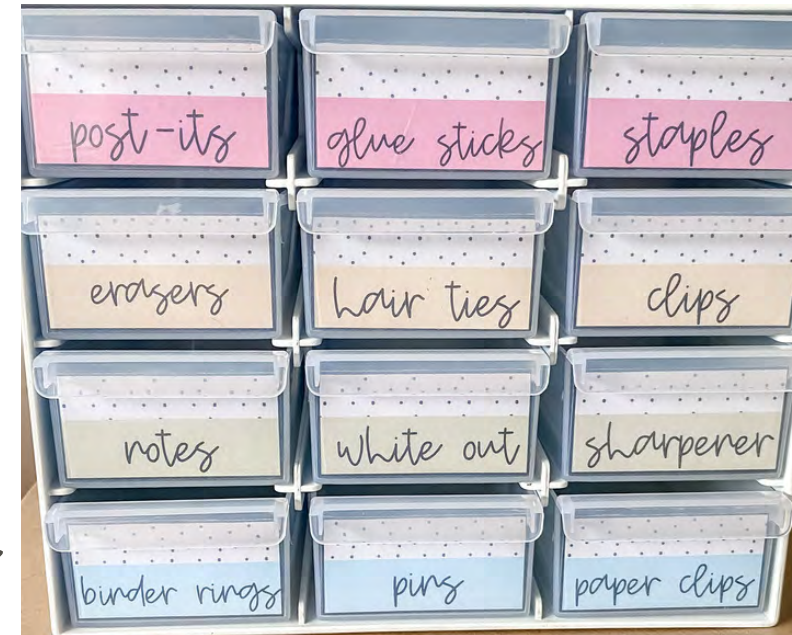 post-its
glue sticks
staples
erasers
hair ties
clips
notes
white out
sharpener
binder rings
pins
paper clips